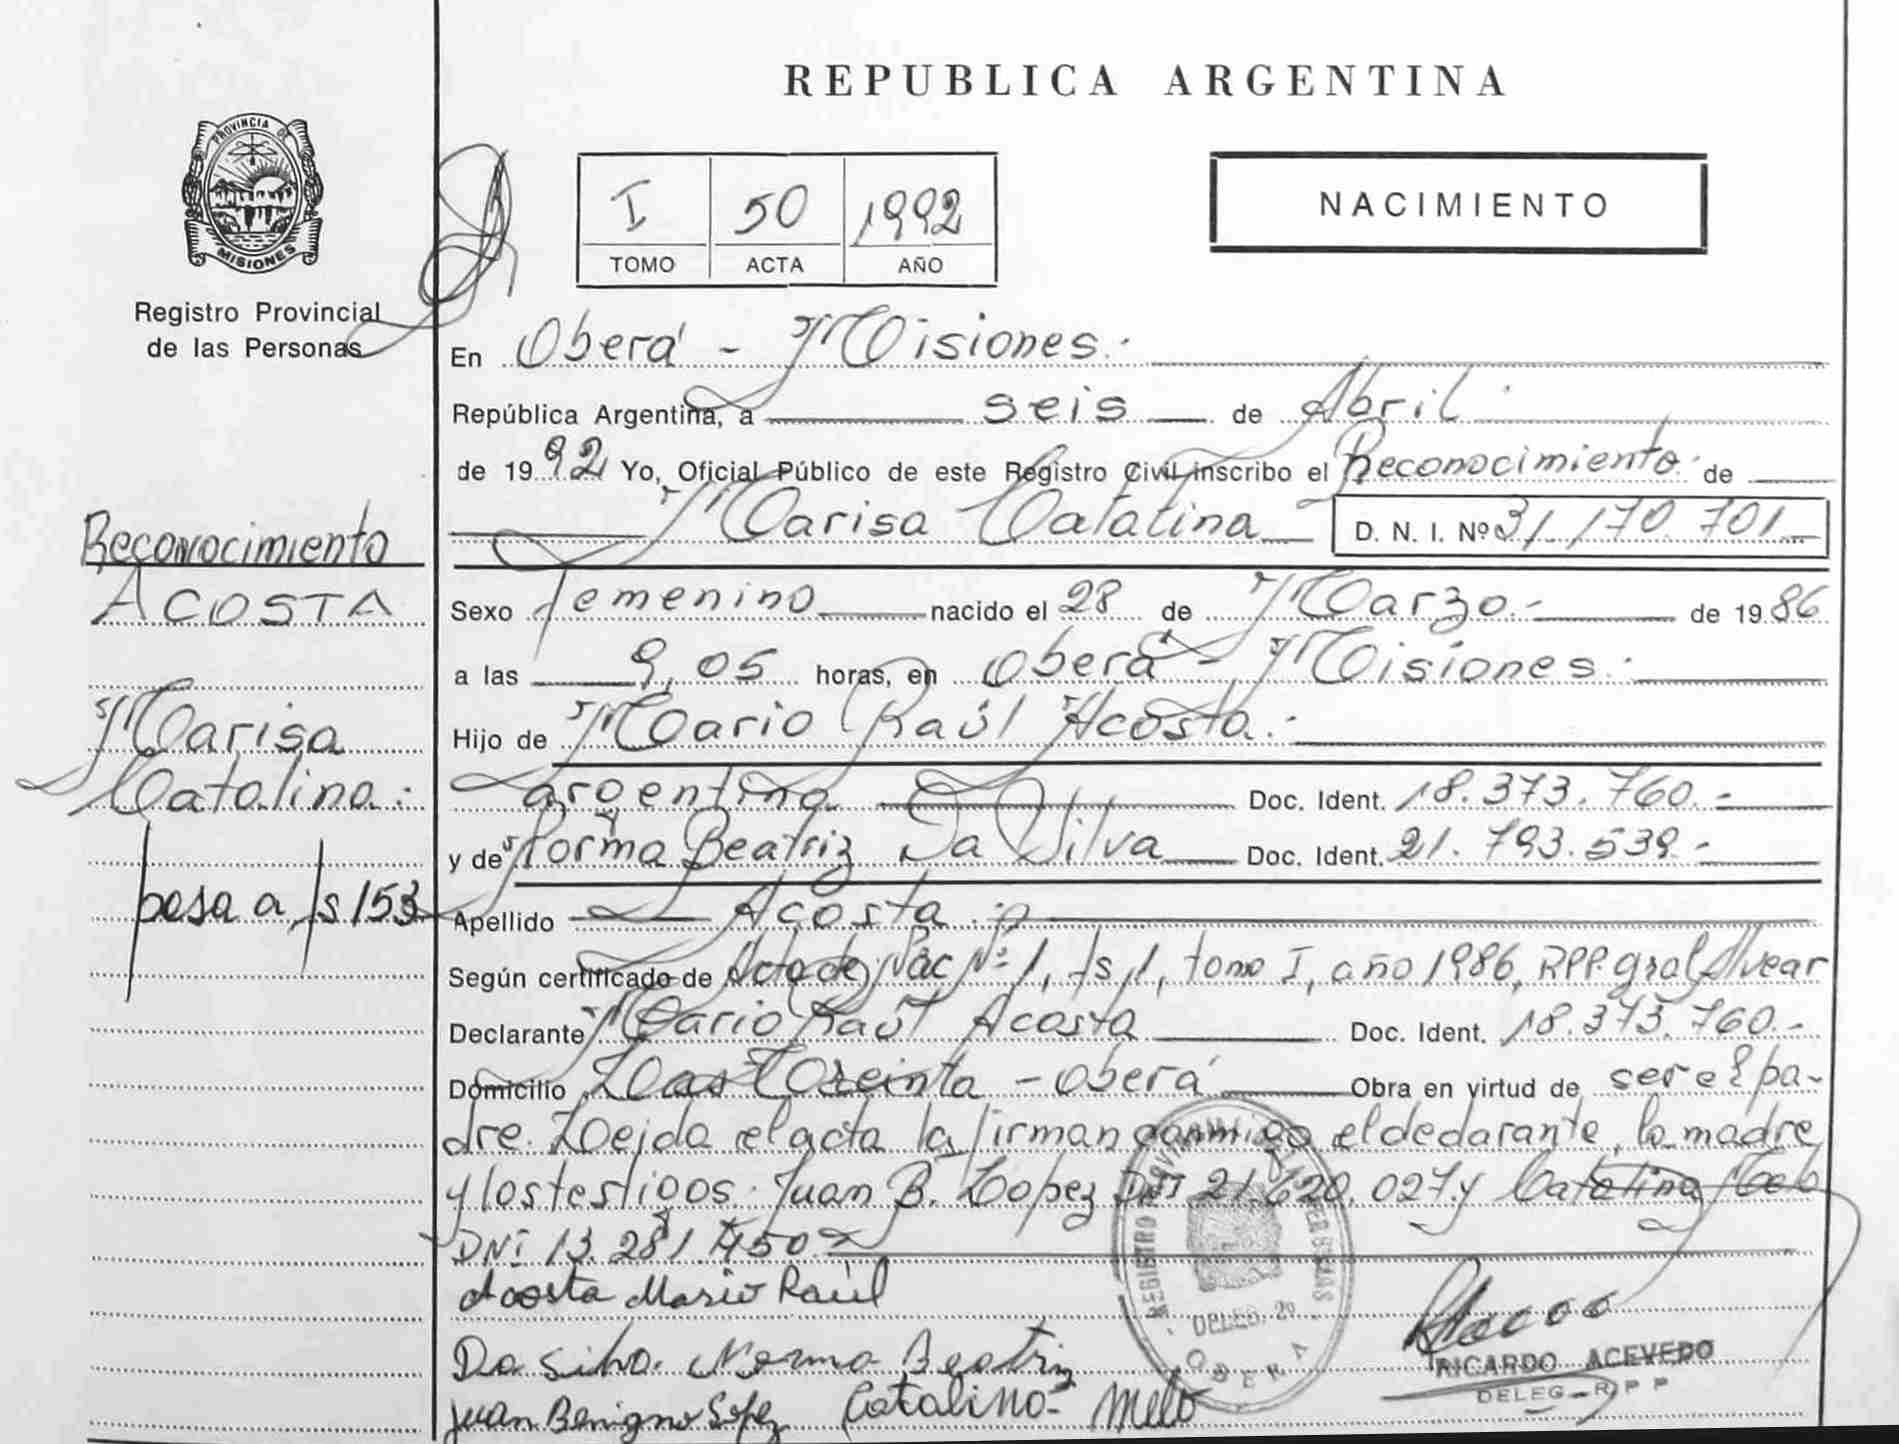 REPUBLICA ARGENTINA
PROVINCIA DE
MISIONES
Registro Provincial
de las Personas
I 50 1992
TOMO ACTA AÑO
NACIMIENTO
En Oberá - Misiones.
República Argentina, a seis de Abril
de 1992 Yo, Oficial Público de este Registro Civil inscribo el Reconocimiento de
Marisa Catalina D. N. I. Nº 31.170.701
Reconocimiento
ACOSTA
Marisa
Catalina.
pasa a fs 153
Sexo Femenino nacido el 28 de Marzo.- de 1986
a las 9,05 horas, en Oberá - Misiones.
Hijo de Mario Raúl Acosta.-
argentina Doc. Ident. 18.373.760.-
y de Norma Beatriz Da Silva Doc. Ident. 21.793.539.-
Apellido Acosta
Según certificado de Acta de Nac Nº 1, fs 1, tomo I, año 1986, RPP. Gral Alvear
Declarante Mario Raúl Acosta Doc. Ident. 18.373.760.-
Domicilio Las Treinta - Oberá Obra en virtud de ser el pa-
dre. Leida el acta la firman conmigo el declarante, la madre
y los testigos. Juan B. Lopez DNI 21.620.027 y Catalina Melo
DNI 13.281.450
Acosta Mario Raúl
Da Silva Norma Beatriz
Juan Benigno Lopez Catalina Melo
DELEG. 20
OBERA
RICARDO ACEVEDO
DELEG. R P P